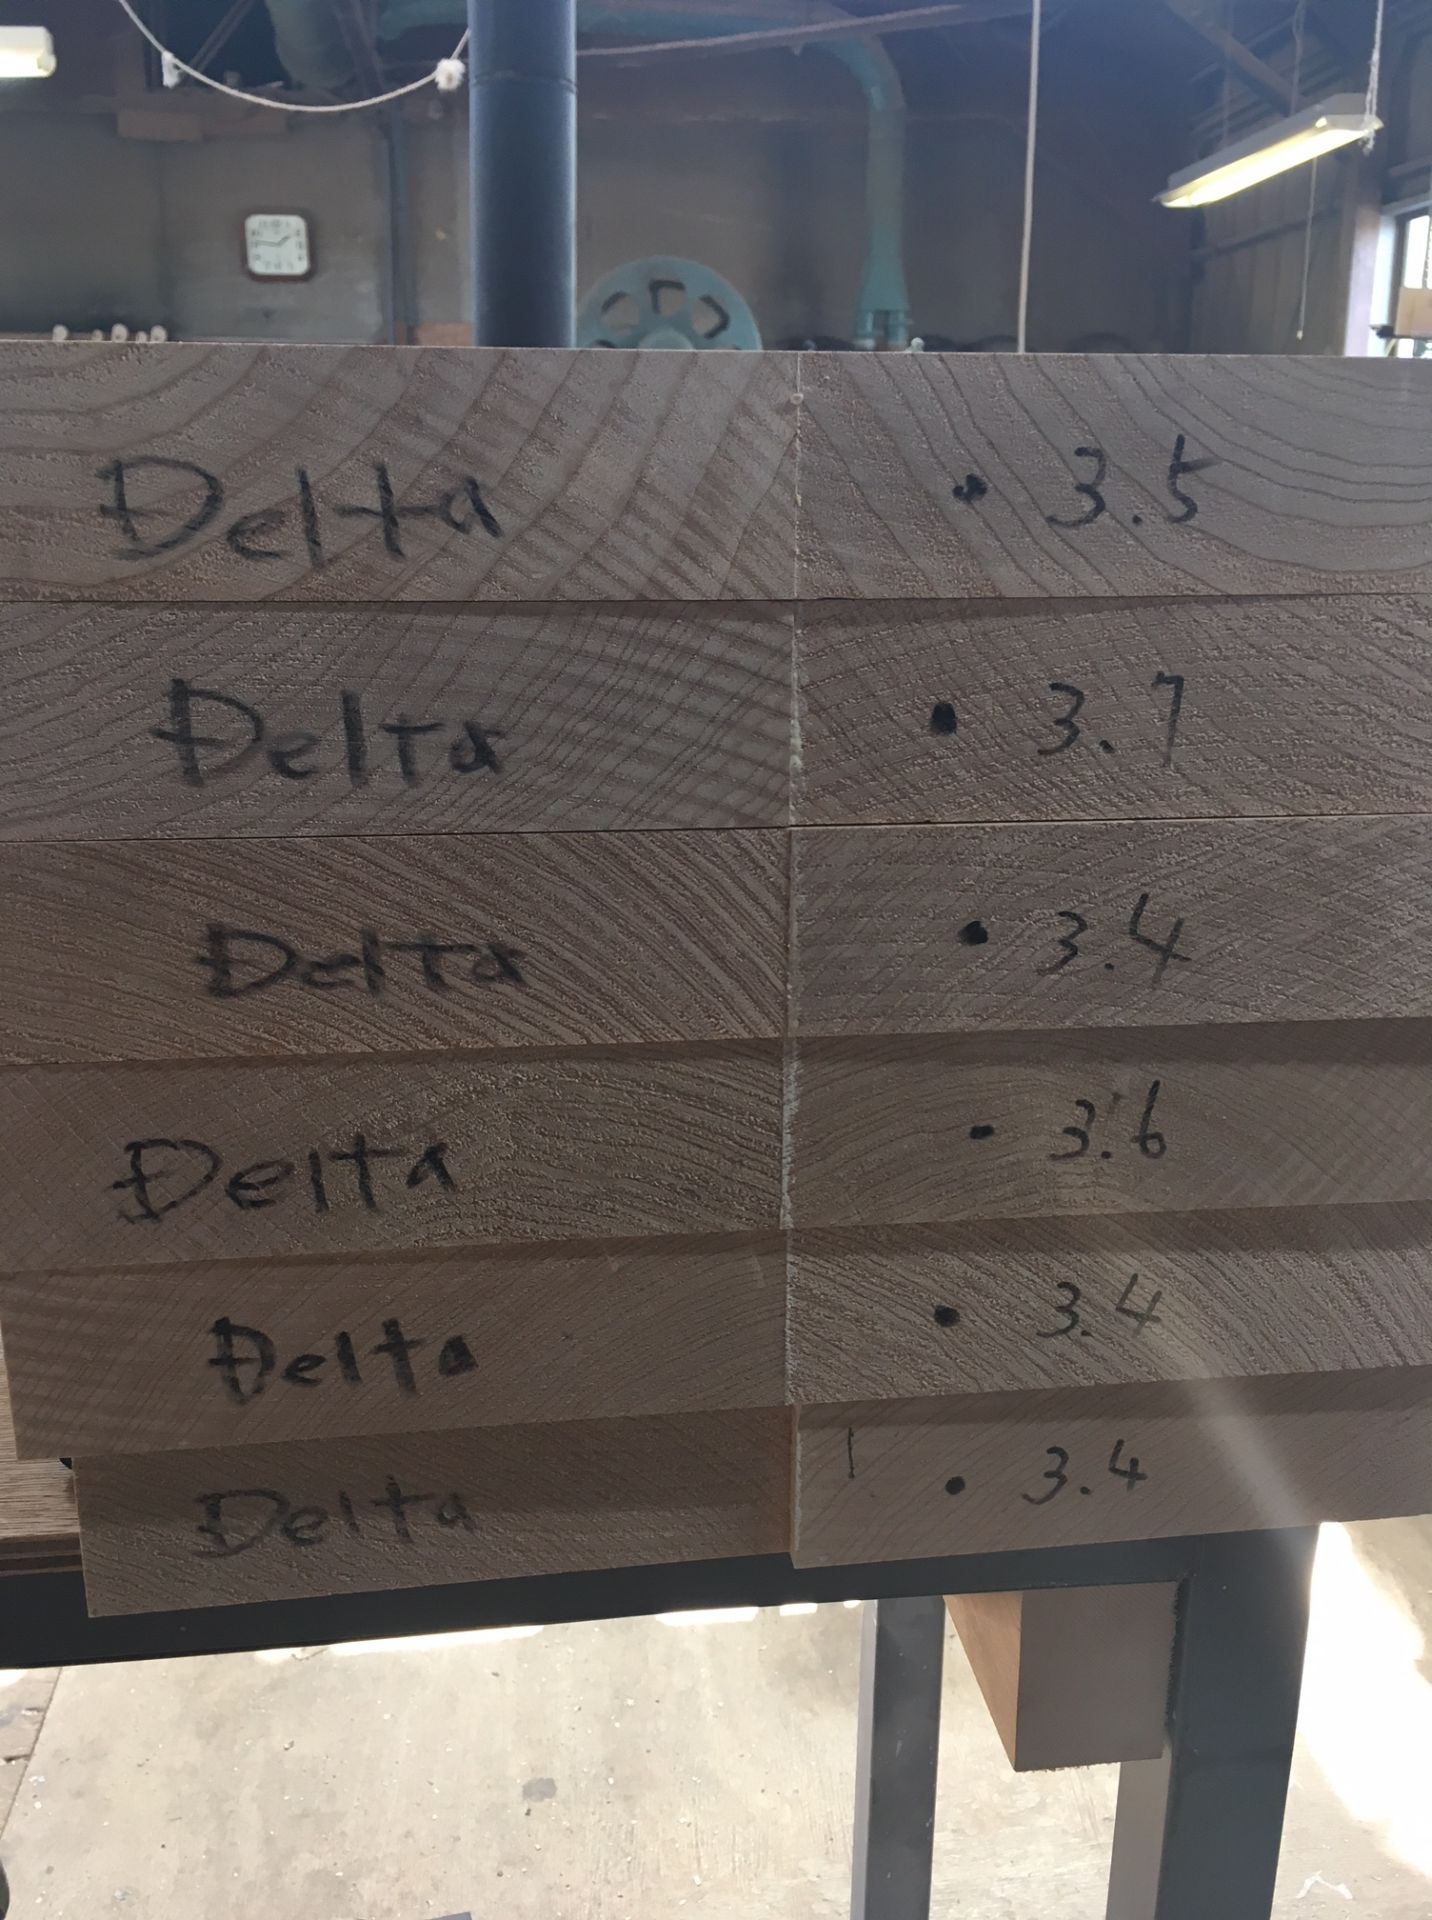 Delta • 3.5
Delta • 3.7
Delta • 3.4
Delta • 3.6
Delta • 3.4
Delta • 3.4